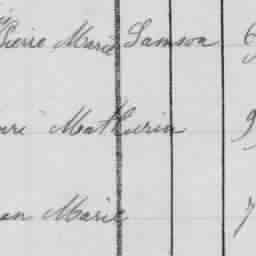 Pierre Marie Samson 6
Mathurin 9
Marie 7